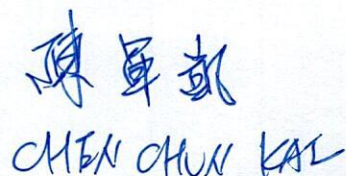 陳軍凱
CHEN CHUN KAI